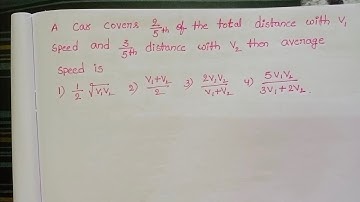 A Car covers 2/5th of the total distance with V₁
speed and 3/5th distance with V₂ then average
speed is
1) 1/2 √V₁V₂ 2) V₁+V₂/2 3) 2V₁V₂/V₁+V₂ 4) 5V₁V₂/3V₁+2V₂.